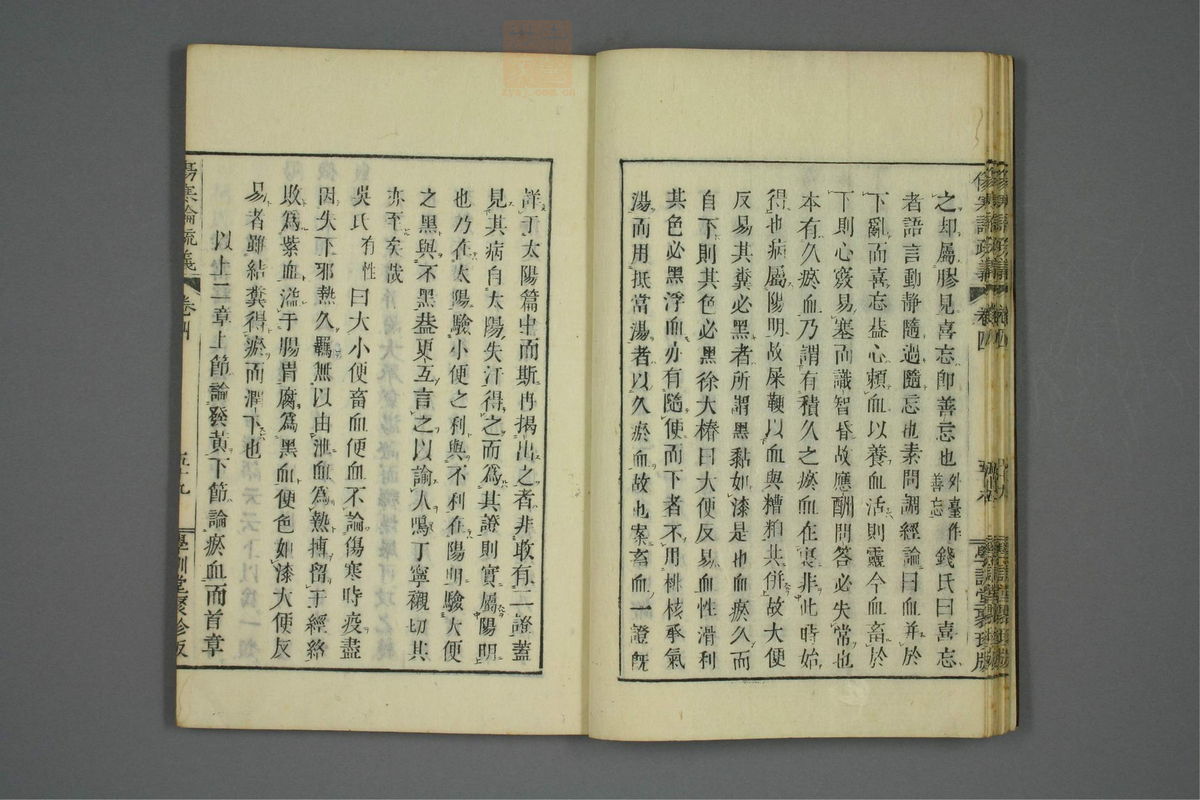 之却屬膠見喜忘卽善忘也外臺作善忘錢氏曰喜忘
者語言動靜隨過隨忘也素問調經論曰血并於
下亂而喜忘蓋心頼血以養血活則靈今血畜於
下則心竅易塞而識智昏故應酬問答必失常也
本有久瘀血乃謂有積久之瘀血在裏非此時始
得也病屬陽明故屎鞕以血與糟粕共併故大便
反易其糞必黑者所謂黑黏如漆是也血瘀久而
自下則其色必黑徐大椿曰大便反易血性滑利
其色必黑浮血亦有隨便而下者不用桃核承氣
湯而用抵當湯者以久瘀血故也案畜血一證旣
詳于太陽篇中而斯冉揭出之者非敢有二證蓋
見其病自太陽失汗得之而爲其證則實屬陽明
也乃在太陽驗小便之利與不利在陽明驗大便
之黑與不黑蓋更互言之以諭人鳴丁寧襯切其
亦至矣哉
吳氏有性曰大小便畜血便血不論傷寒時疫盡
因失下邪熱久羈無以由泄血爲熱搏留于經絡
敗爲紫血溢于腸胃腐爲黑血便色如漆大便反
易者雖結糞得瘀而潤下也
以上二章上節論發黃下節論瘀血而首章
傷寒論疏義
卷四
五十九
學訓堂聚珍版